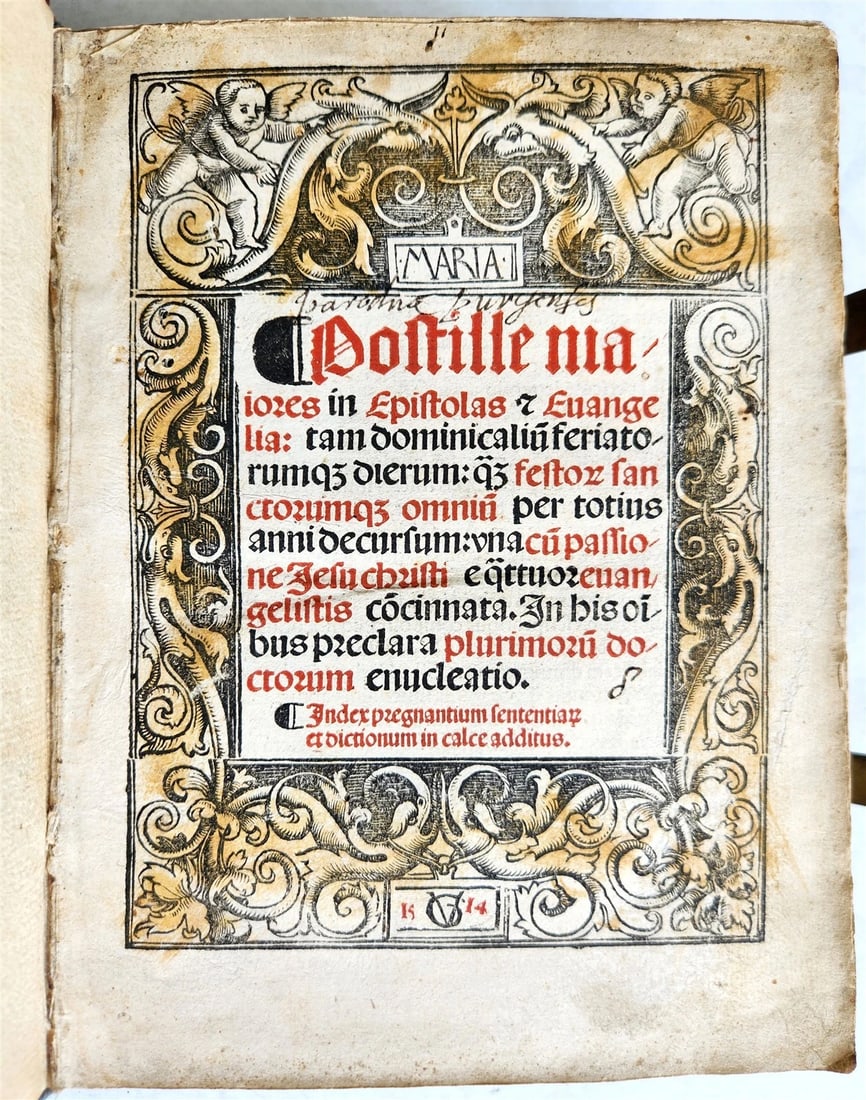 ·MARIA·
¶ Postille ma⸗
iores in Epistolas ⁊ Euange
lia: tam dominicaliū feriato⸗
rumqꝫ dierum: q̄ꝫ festoꝝ san
ctorumqꝫ omniū per totius
anni decursum: vna cū passio⸗
ne Jesu christi e q̄ttuor euan⸗
gelistis cōcinnata. In his oī⸗
bus preclara plurimorū do⸗
ctorum enucleatio.
¶ Index pregnantium sententiaꝝ
et dictionum in calce additus.
15 VG 14